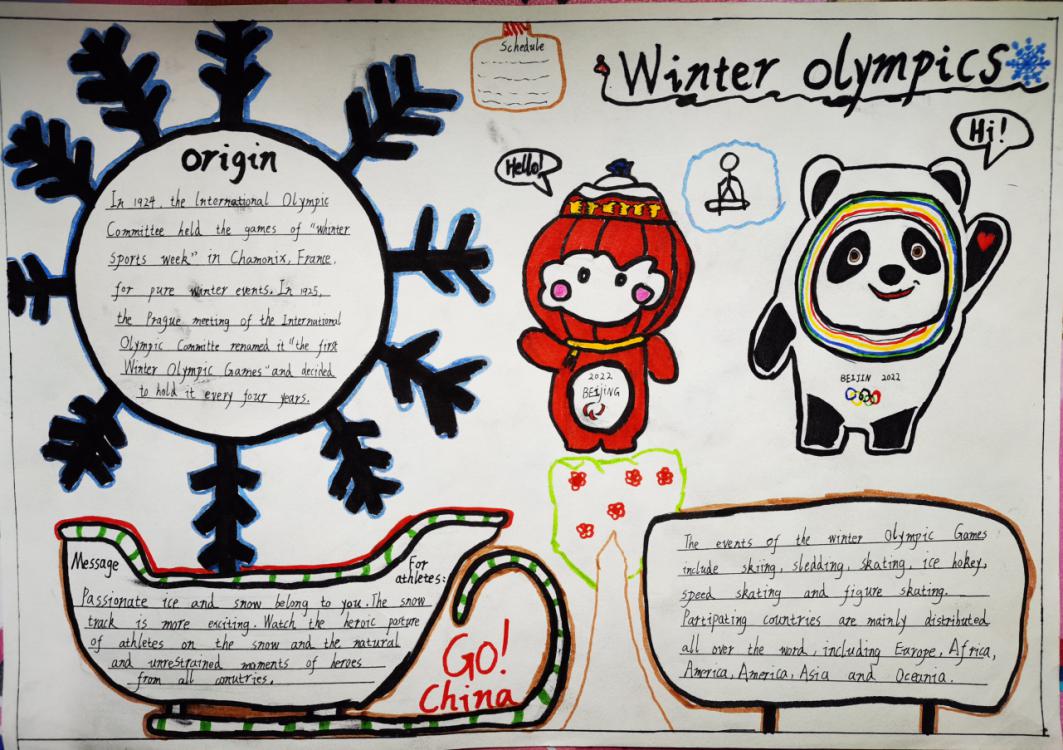 Schedule
Winter Olympics
Hello!
Hi!
origin
In 1924, the International Olympic
Committee held the games of "whinter
sports week" in Chamonix, France.
for pure winter events. In 1925,
the Prague meeting of the International
Olympic Committe renamed it "the first
Winter Olympic Games" and decided
to hold it every four years.
2022
BEIJING
BEIJING 2022
Message
For
athletes:
Passionate ice and snow belong to you. The snow
track is more exciting. Watch the heroic posture
of athletes on the snow and the natural
and unrestrained moments of heroes
from all conutries.
GO!
China
The events of the winter Olympic Games
include skiing, sledding, skating, ice hokey,
speed skating and figure skating.
Partipating countries are mainly distributed
all over the word, including Europe, Africa,
America, America, Asia and Oceania.